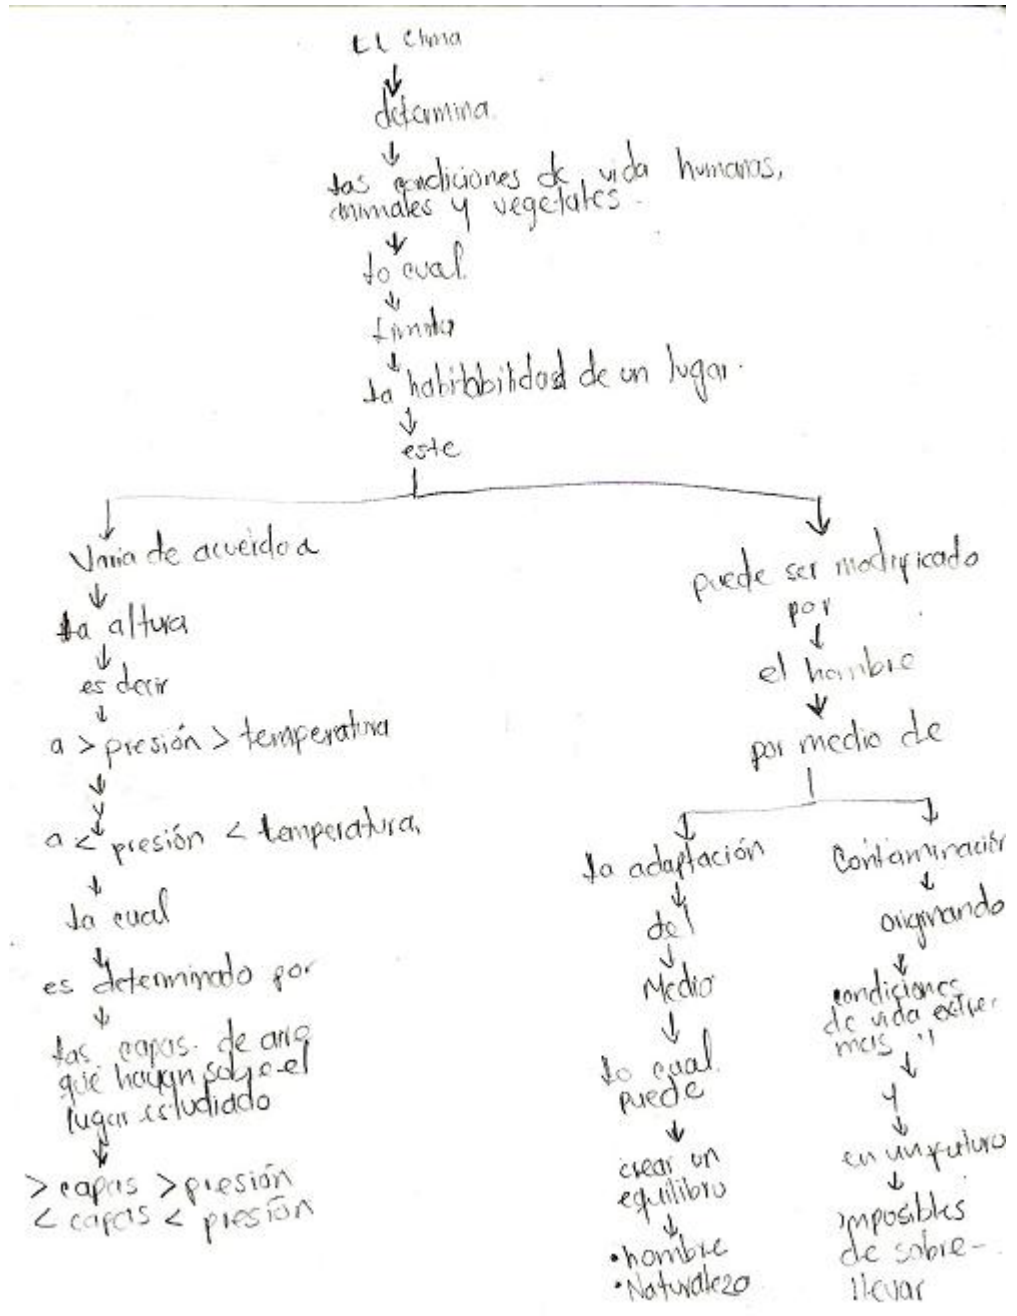 El Clima
determina
las condiciones de vida humanas,
animales y vegetales.
lo cual
limita
la habitabilidad de un lugar.
este
Varia de acuerdo a
la altura
es decir
a > presión > temperatura
y
a < presión < temperatura
la cual
es determinado por
las capas de aire
que hayan sobre el
lugar estudiado
> capas > presión
< capas < presión
puede ser modificado
por
el hombre
por medio de
la adaptación
del
Medio
lo cual
puede
crear un
equilibro
• hombre
• Naturaleza
Contaminación
originando
condiciones
de vida extre-
mas
y
en un futuro
imposibles
de sobre-
llevar